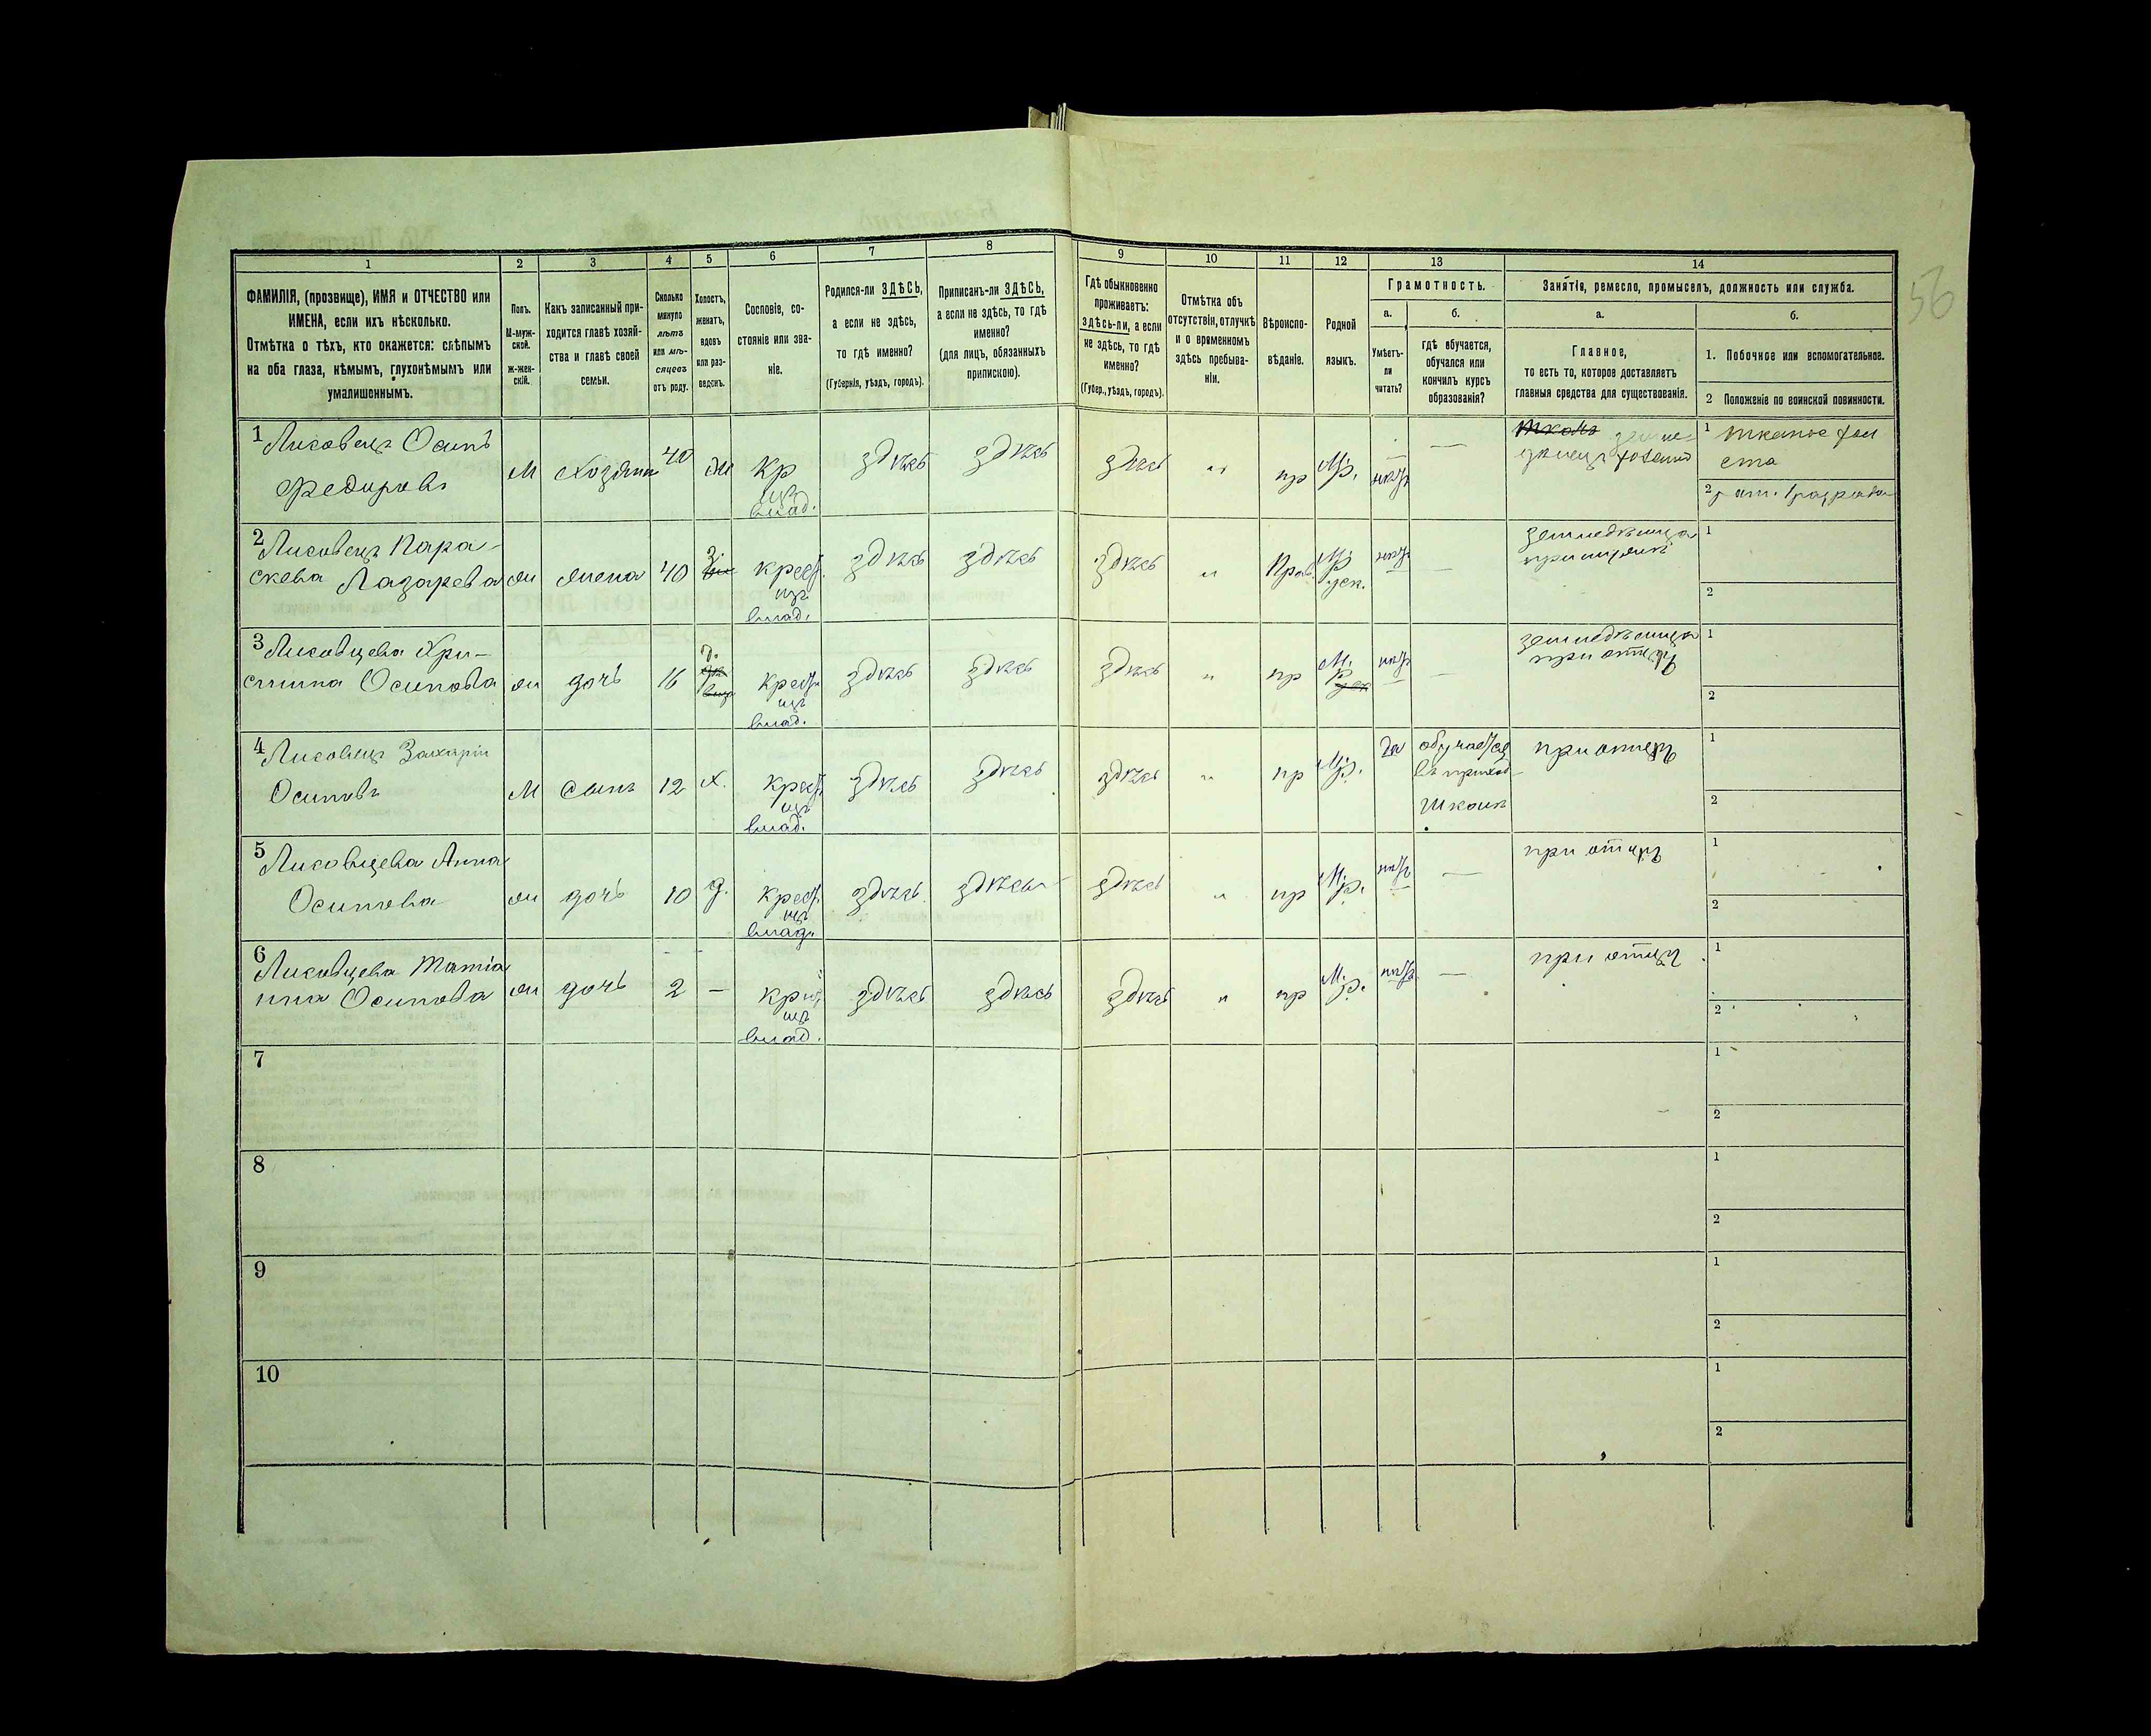 56
1
2
3
4
5
6
7
8
9
10
11
12
13
14
ФАМИЛІЯ, (прозвище), ИМЯ и ОТЧЕСТВО или
ИМЕНА, если ихъ нѣсколько.
Отмѣтка о тѣхъ, кто окажется: слѣпымъ
на оба глаза, нѣмымъ, глухонѣмымъ или
умалишеннымъ.
Полъ.
М-муж-
ской.
ж-жен-
скій.
Какъ записанный при-
ходится главѣ хозяй-
ства и главѣ своей
семьи.
Сколько
минуло
лѣтъ
или мѣ-
сяцевъ
отъ роду.
Холостъ,
женатъ,
вдовъ
или раз-
веденъ.
Сословіе, со-
стояніе или зва-
ніе.
Родился-ли ЗДѢСЬ,
а если не здѣсь,
то гдѣ именно?
(Губернія, уѣздъ, городъ).
Приписанъ-ли ЗДѢСЬ,
а если не здѣсь, то гдѣ
именно?
(для лицъ, обязанныхъ
припискою).
Гдѣ обыкновенно
проживаетъ:
здѣсь-ли, а если
не здѣсь, то гдѣ
именно?
(Губер., уѣздъ, городъ).
Отмѣтка объ
отсутствіи, отлучкѣ
и о временномъ
здѣсь пребыва-
ніи.
Вѣроиспо-
вѣданіе.
Родной
языкъ.
Грамотность.
а.
Умѣетъ-
ли
читать?
б.
гдѣ обучается,
обучался или
кончилъ курсъ
образованія?
Занятія, ремесло, промыселъ, должность или служба.
а.
Главное,
то есть то, которое доставляетъ
главныя средства для существованія.
б.
1. Побочное или вспомогательное.
2 Положеніе по воинской повинности.
1 Лисовецъ Осипъ
Федоровъ
М
хозяинъ
40
ж
Кр
изъ
влад.
здѣсь
здѣсь
здѣсь
"
пр
М.р.
нѣтъ
—
1 тканіе хол
ста
2
2 Лисовецъ Пара-
скева Лазарева
ж
жена
40
З.
крест.
изъ
влад.
здѣсь
здѣсь
здѣсь
"
Прав.
М.
р
нѣтъ
—
земледѣлица
1
2
3 Лисовцева Хри-
стина Осипова
ж
дочь
16
д.
крест.
изъ
влад.
здѣсь
здѣсь
здѣсь
"
пр
М.
р
нѣтъ
—
земледѣлица
при отцѣ
1
2
4 Лисовецъ Захарій
Осиповъ
М
сынъ
12
х.
крест.
изъ
влад.
здѣсь
здѣсь
здѣсь
"
пр
М.р.
да
обучается
въ приход
школѣ
при отцѣ
1
2
5 Лисовцева Анна
Осипова
ж
дочь
10
д.
крест.
изъ
влад.
здѣсь
здѣсь
здѣсь
"
пр
М.р.
нѣтъ
—
при отцѣ
1
2
6 Лисовцева Татіа
нна Осипова
ж
дочь
2
—
крест.
изъ
влад.
здѣсь
здѣсь
здѣсь
"
пр
М.р.
нѣтъ
—
при отцѣ
1
2
7
1
2
8
1
2
9
1
2
10
1
2